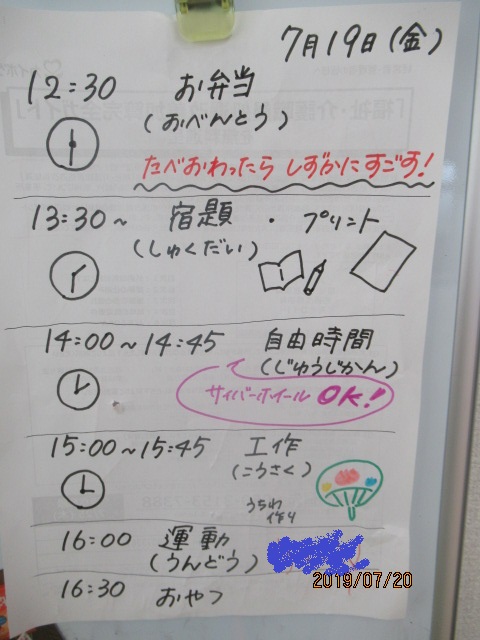 7月19日(金)
12:30 お弁当
(おべんとう)
たべおわったら しずかにすごす!
13:30～ 宿題・プリント
(しゅくだい)
14:00～14:45 自由時間
(じゆうじかん)
サイバーホイール OK!
15:00～15:45 工作
(こうさく)
うちわ
作り
16:00 運動
(うんどう)
16:30 おやつ
2019/07/20